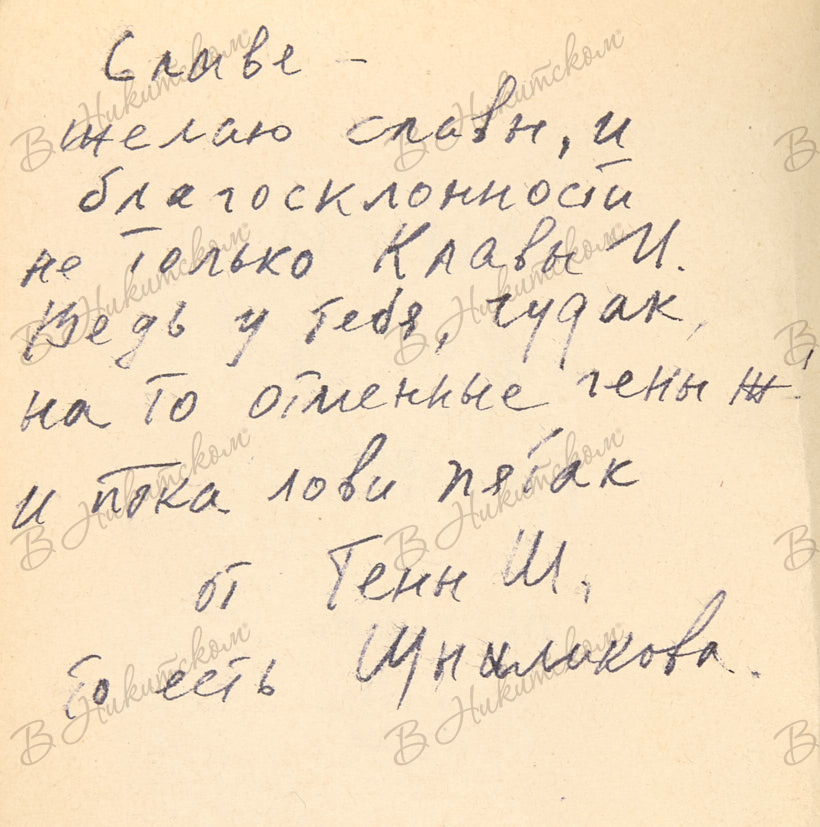 Славе –
желаю славы, и
благосклонности
не только Клавы И.
Ведь у тебя, чудак,
на то отменные гены ж!
и пока лови пятак
от Гены Ш.,
то есть
В Никитском